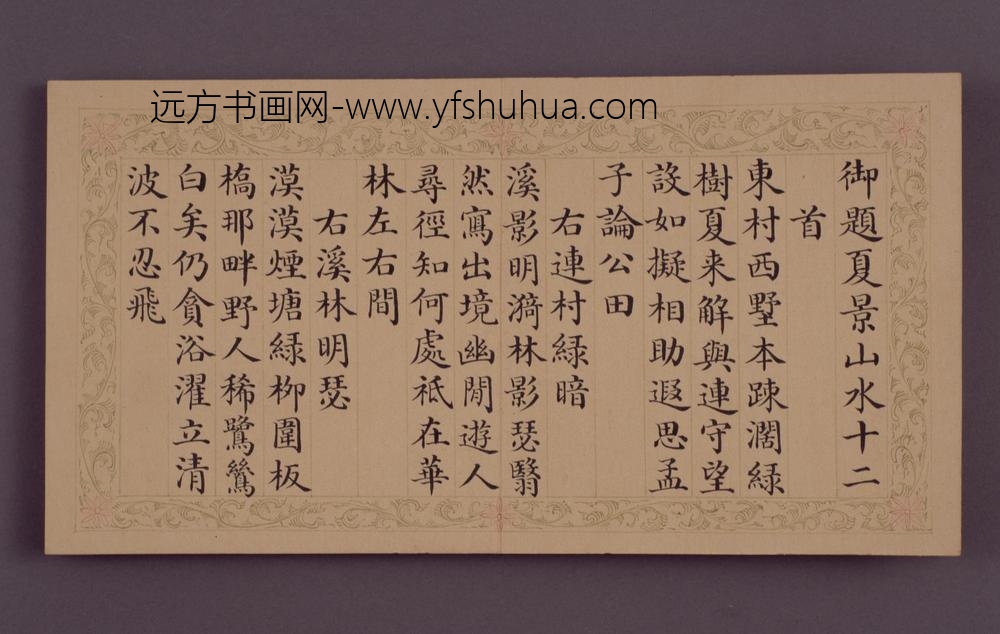 远方书画网-www.yfshuhua.com
御題夏景山水十二
首
東村西墅本踈濶緑
樹夏来解與連守望
設如擬相助遐思孟
子論公田
右連村緑暗
溪影明漪林影瑟翳
然寫出境幽閒遊人
尋徑知何處祗在華
林左右間
右溪林明瑟
漠漠煙塘緑栁圍板
橋那畔野人稀鷺鷥
白矣仍貪浴濯立清
波不忍飛